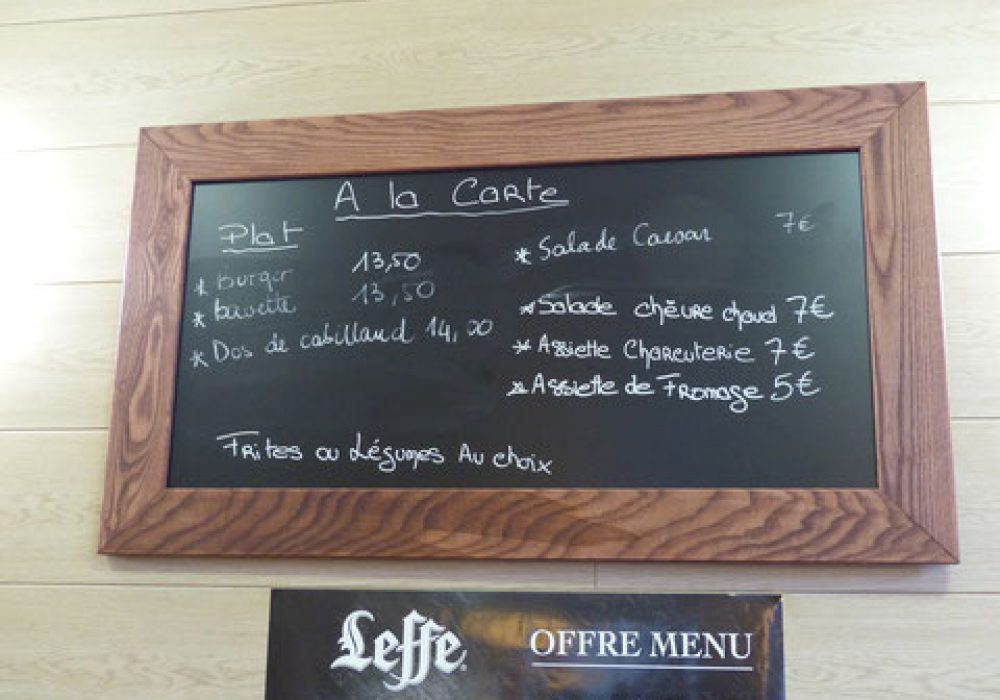 A la Carte
Plat
* Burger 13,50
* bavette 13,50
* Dos de cabillaud 14,00
* Salade 7€
* Salade chèvre chaud 7€
* Assiette Charcuterie 7€
* Assiette de Fromage 5€
Frites ou Légumes Au choix
Leffe
OFFRE MENU